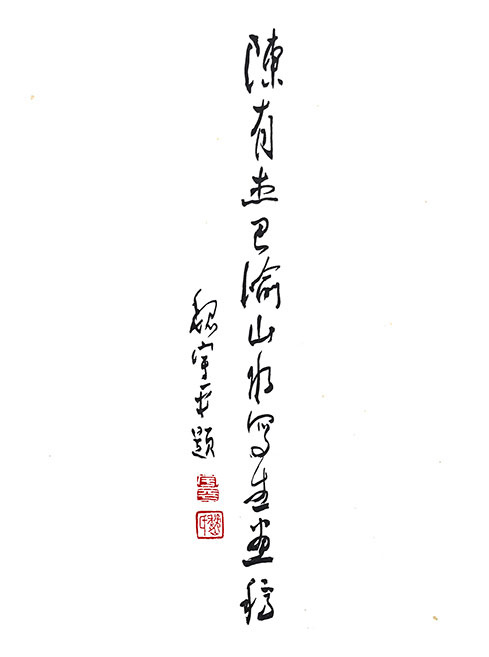 陳有杰巴渝山水寫生畫稿
魏宇平題